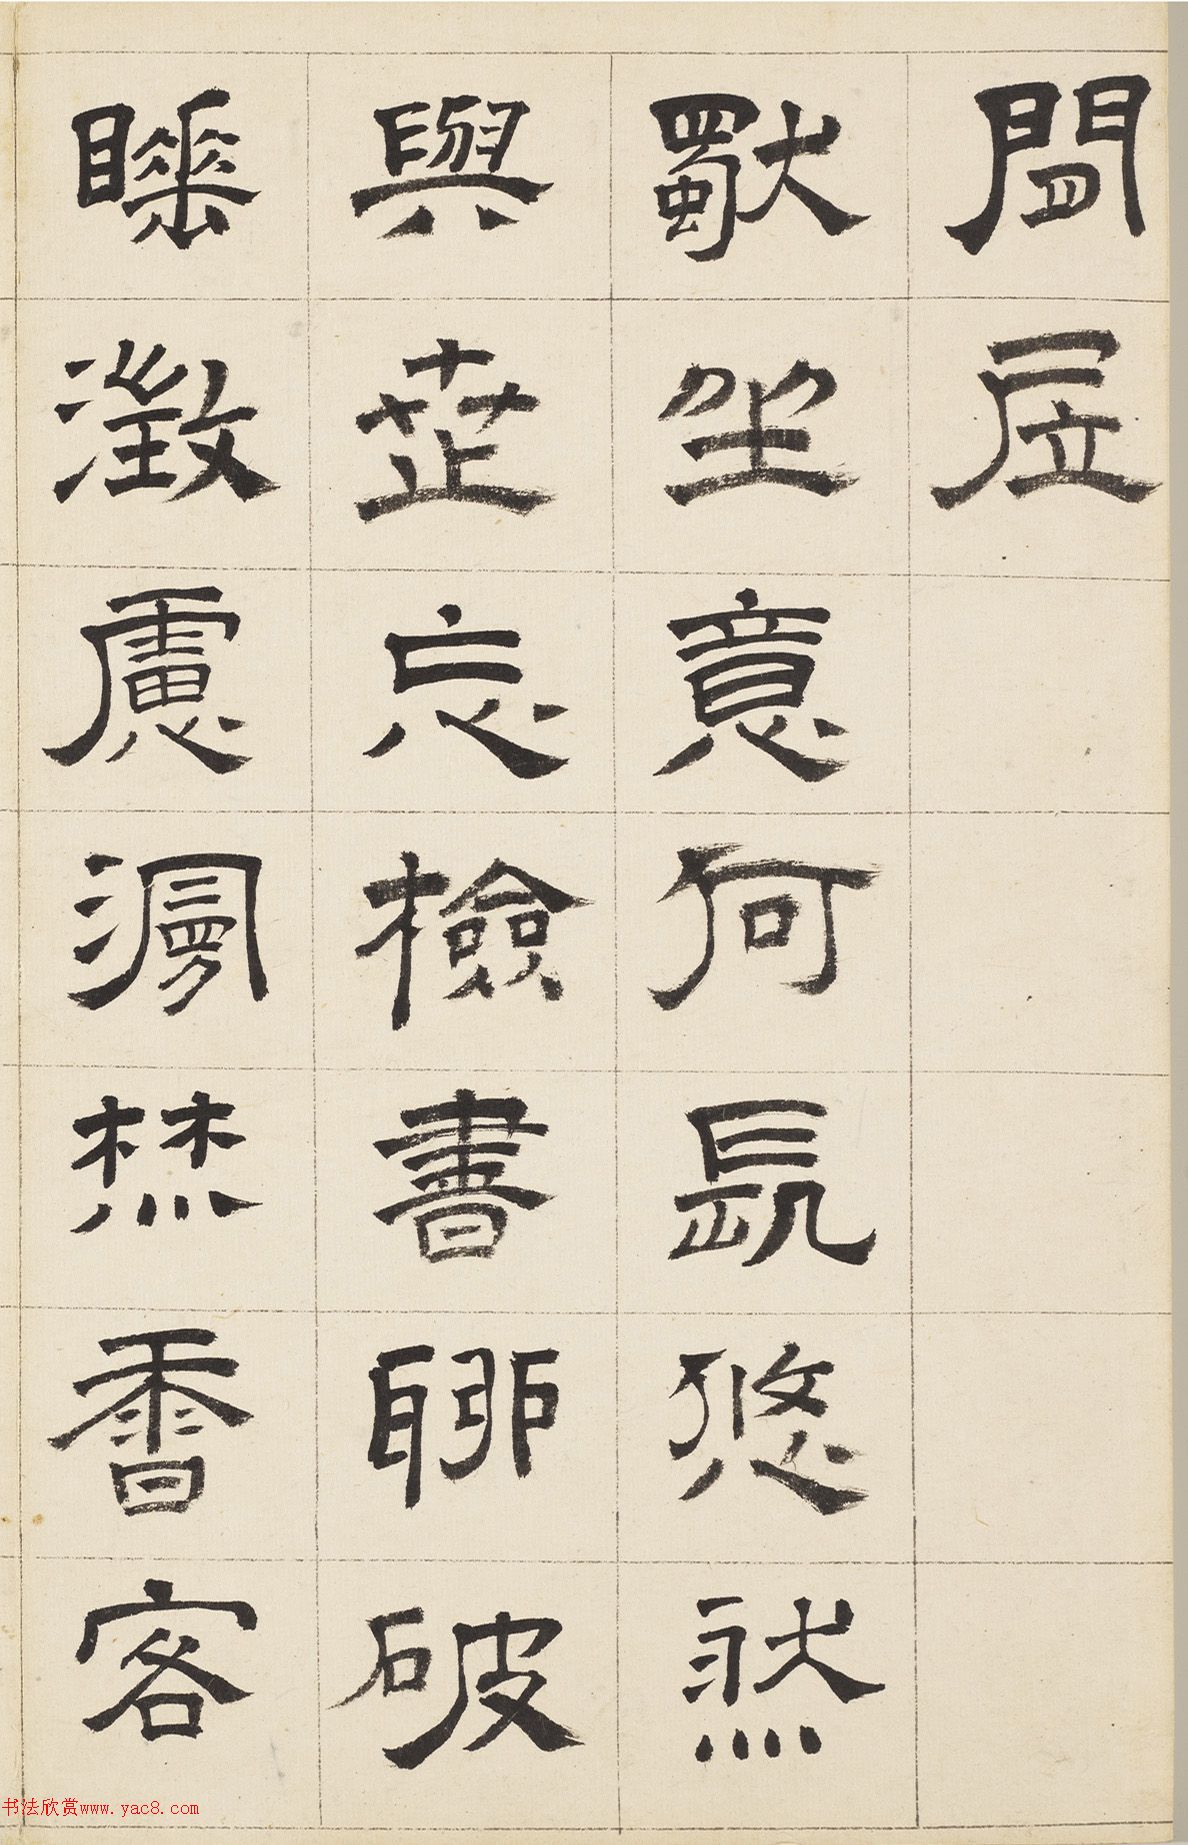 閒居
獨坐意何長悠然
與世忘檢書聊破
睡澂慮漫焚香客
书法欣赏www.yac8.com